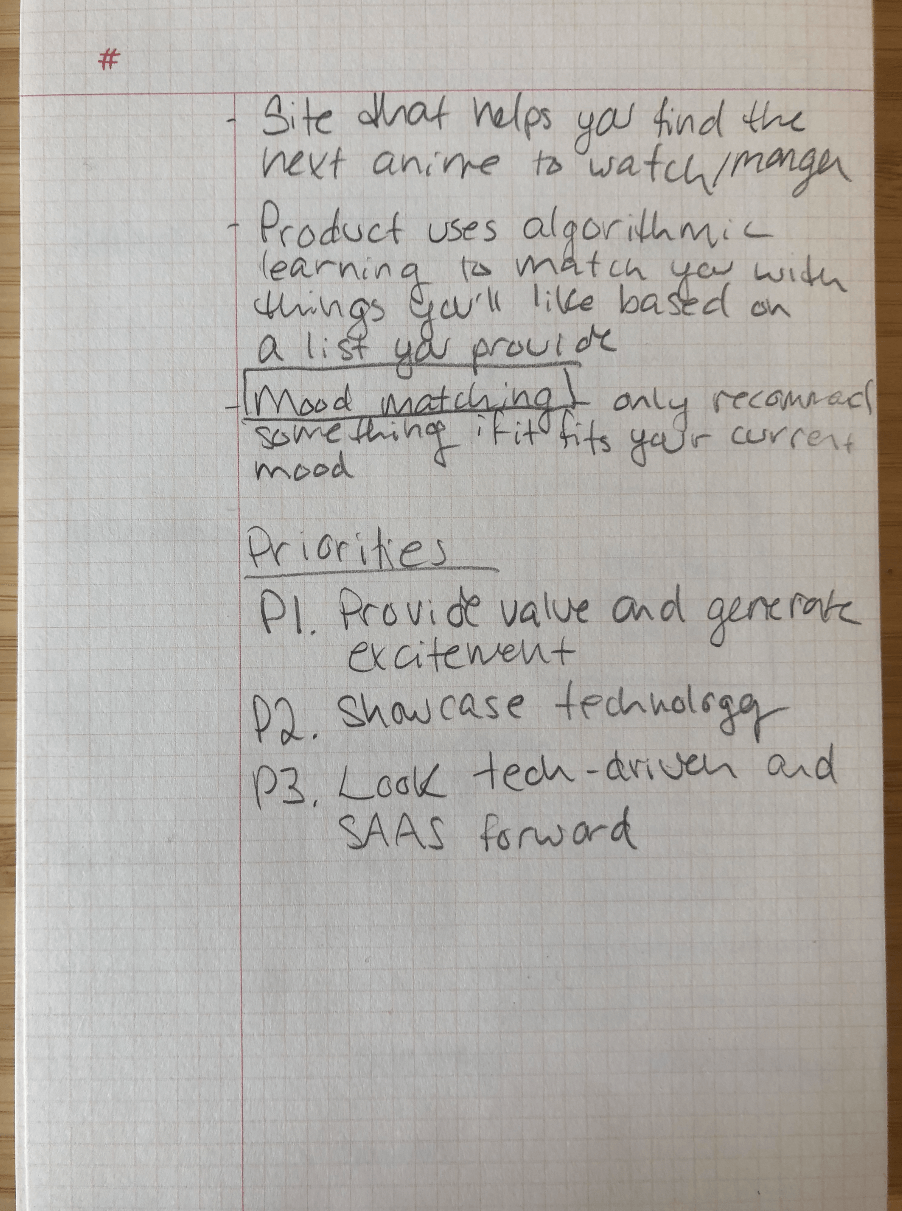 #
- Site that helps you find the
next anime to watch/manga
- Product uses algorithmic
learning to match you with
things you'll like based on
a list you provide
- Mood matching - only recommed
something if it fits your current
mood
Priorities
P1. Provide value and generate
excitement
P2. Showcase technology
P3. Look tech-driven and
SAAS forward